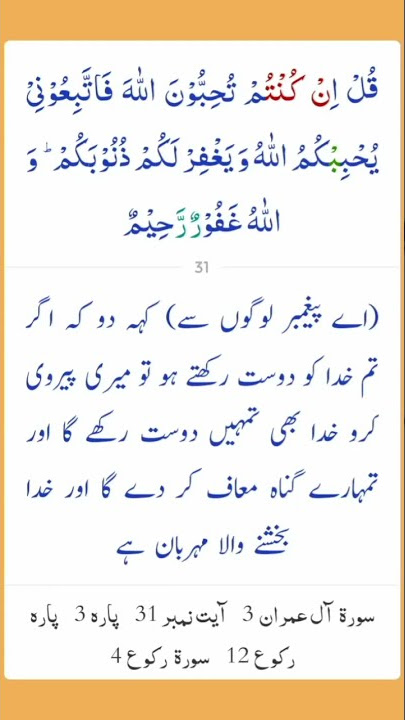 قُلْ اِنْ كُنْتُمْ تُحِبُّوْنَ اللّٰهَ فَاتَّبِعُوْنِیْ
یُحْبِبْكُمُ اللّٰهُ وَ یَغْفِرْ لَكُمْ ذُنُوْبَكُمْؕ وَ
اللّٰهُ غَفُوْرٌ رَّحِیْمٌ
31
(اے پیغمبر لوگوں سے) کہہ دو کہ اگر
تم خدا کو دوست رکھتے ہو تو میری پیروی
کرو خدا بھی تمہیں دوست رکھے گا اور
تمہارے گناہ معاف کر دے گا اور خدا
بخشنے والا مہربان ہے
سورۃ آل عمران 3 آیت نمبر 31 پارہ 3 پارہ
رکوع 12 سورۃ رکوع 4